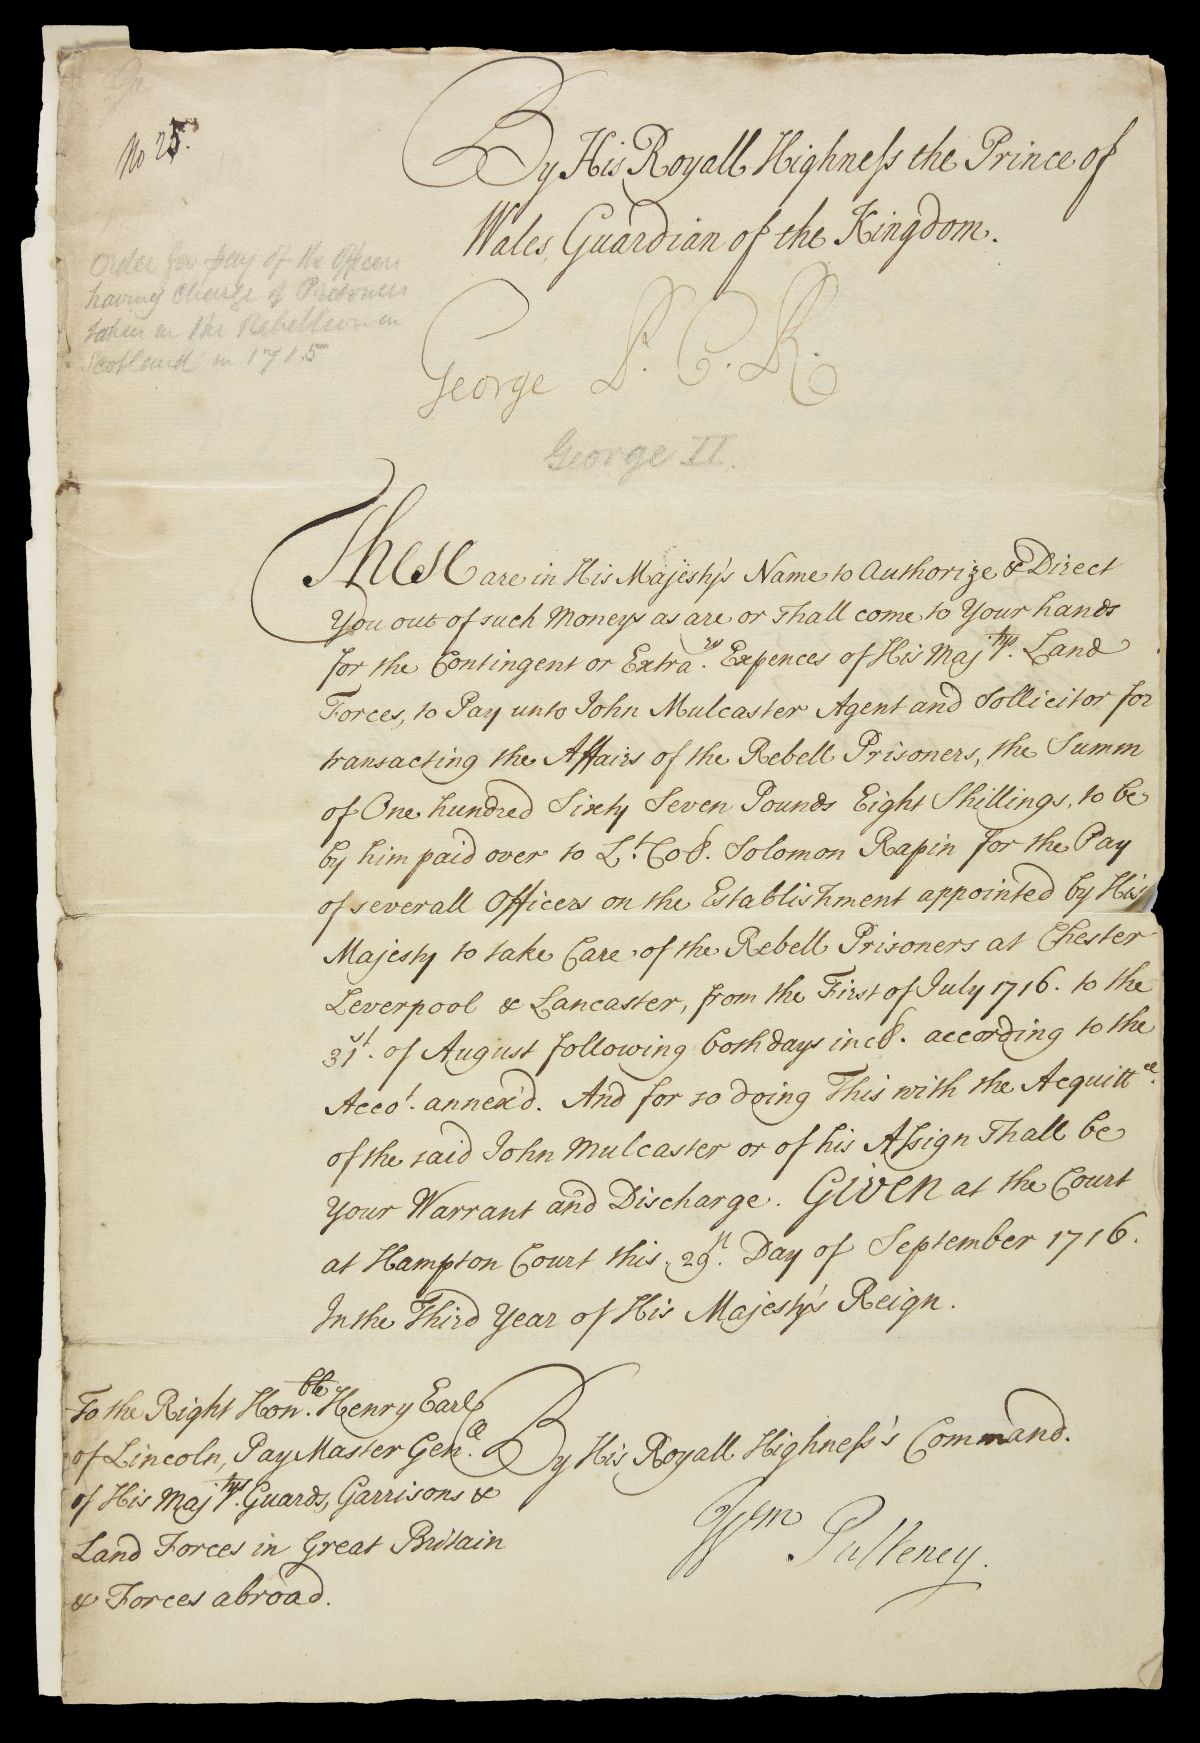 No 25.
By His Royall Highness the Prince of
Wales, Guardian of the Kingdom.
Order for Pay of the Officers
having charge of Prisoners
taken in the Rebellion in
Scotland in 1715
George P. C. R.
George II.
These are in His Majesty's Name to Authorize & Direct
You out of such Moneys as are or shall come to Your hands
for the Contingent or Extra.ry Expences of His Maj.tys Land
Forces, to Pay unto John Mulcaster Agent and Sollicitor for
transacting the Affairs of the Rebell Prisoners, the Summ
of One hundred Sixty Seven Pounds Eight Shillings, to be
by him paid over to L.t Col. Solomon Rapin for the Pay
of severall Officers on the Establishment appointed by His
Majesty to take Care of the Rebell Prisoners at Chester
Leverpool & Lancaster, from the First of July 1716. to the
31st. of August following both days incl. according to the
Acco.t annex'd. And for so doing This with the Acquitt.ce
of the said John Mulcaster or of his Assign shall be
Your Warrant and Discharge. Given at the Court
at Hampton Court this 29st. Day of September 1716.
In the Third Year of His Majesty's Reign.
To the Right Hon.ble Henry Earl
of Lincoln, Pay Master Gen.ll
of His Maj.tys Guards, Garrisons &
Land Forces in Great Britain
& Forces abroad.
By His Royall Highness's Command.
Wm Pulteney.